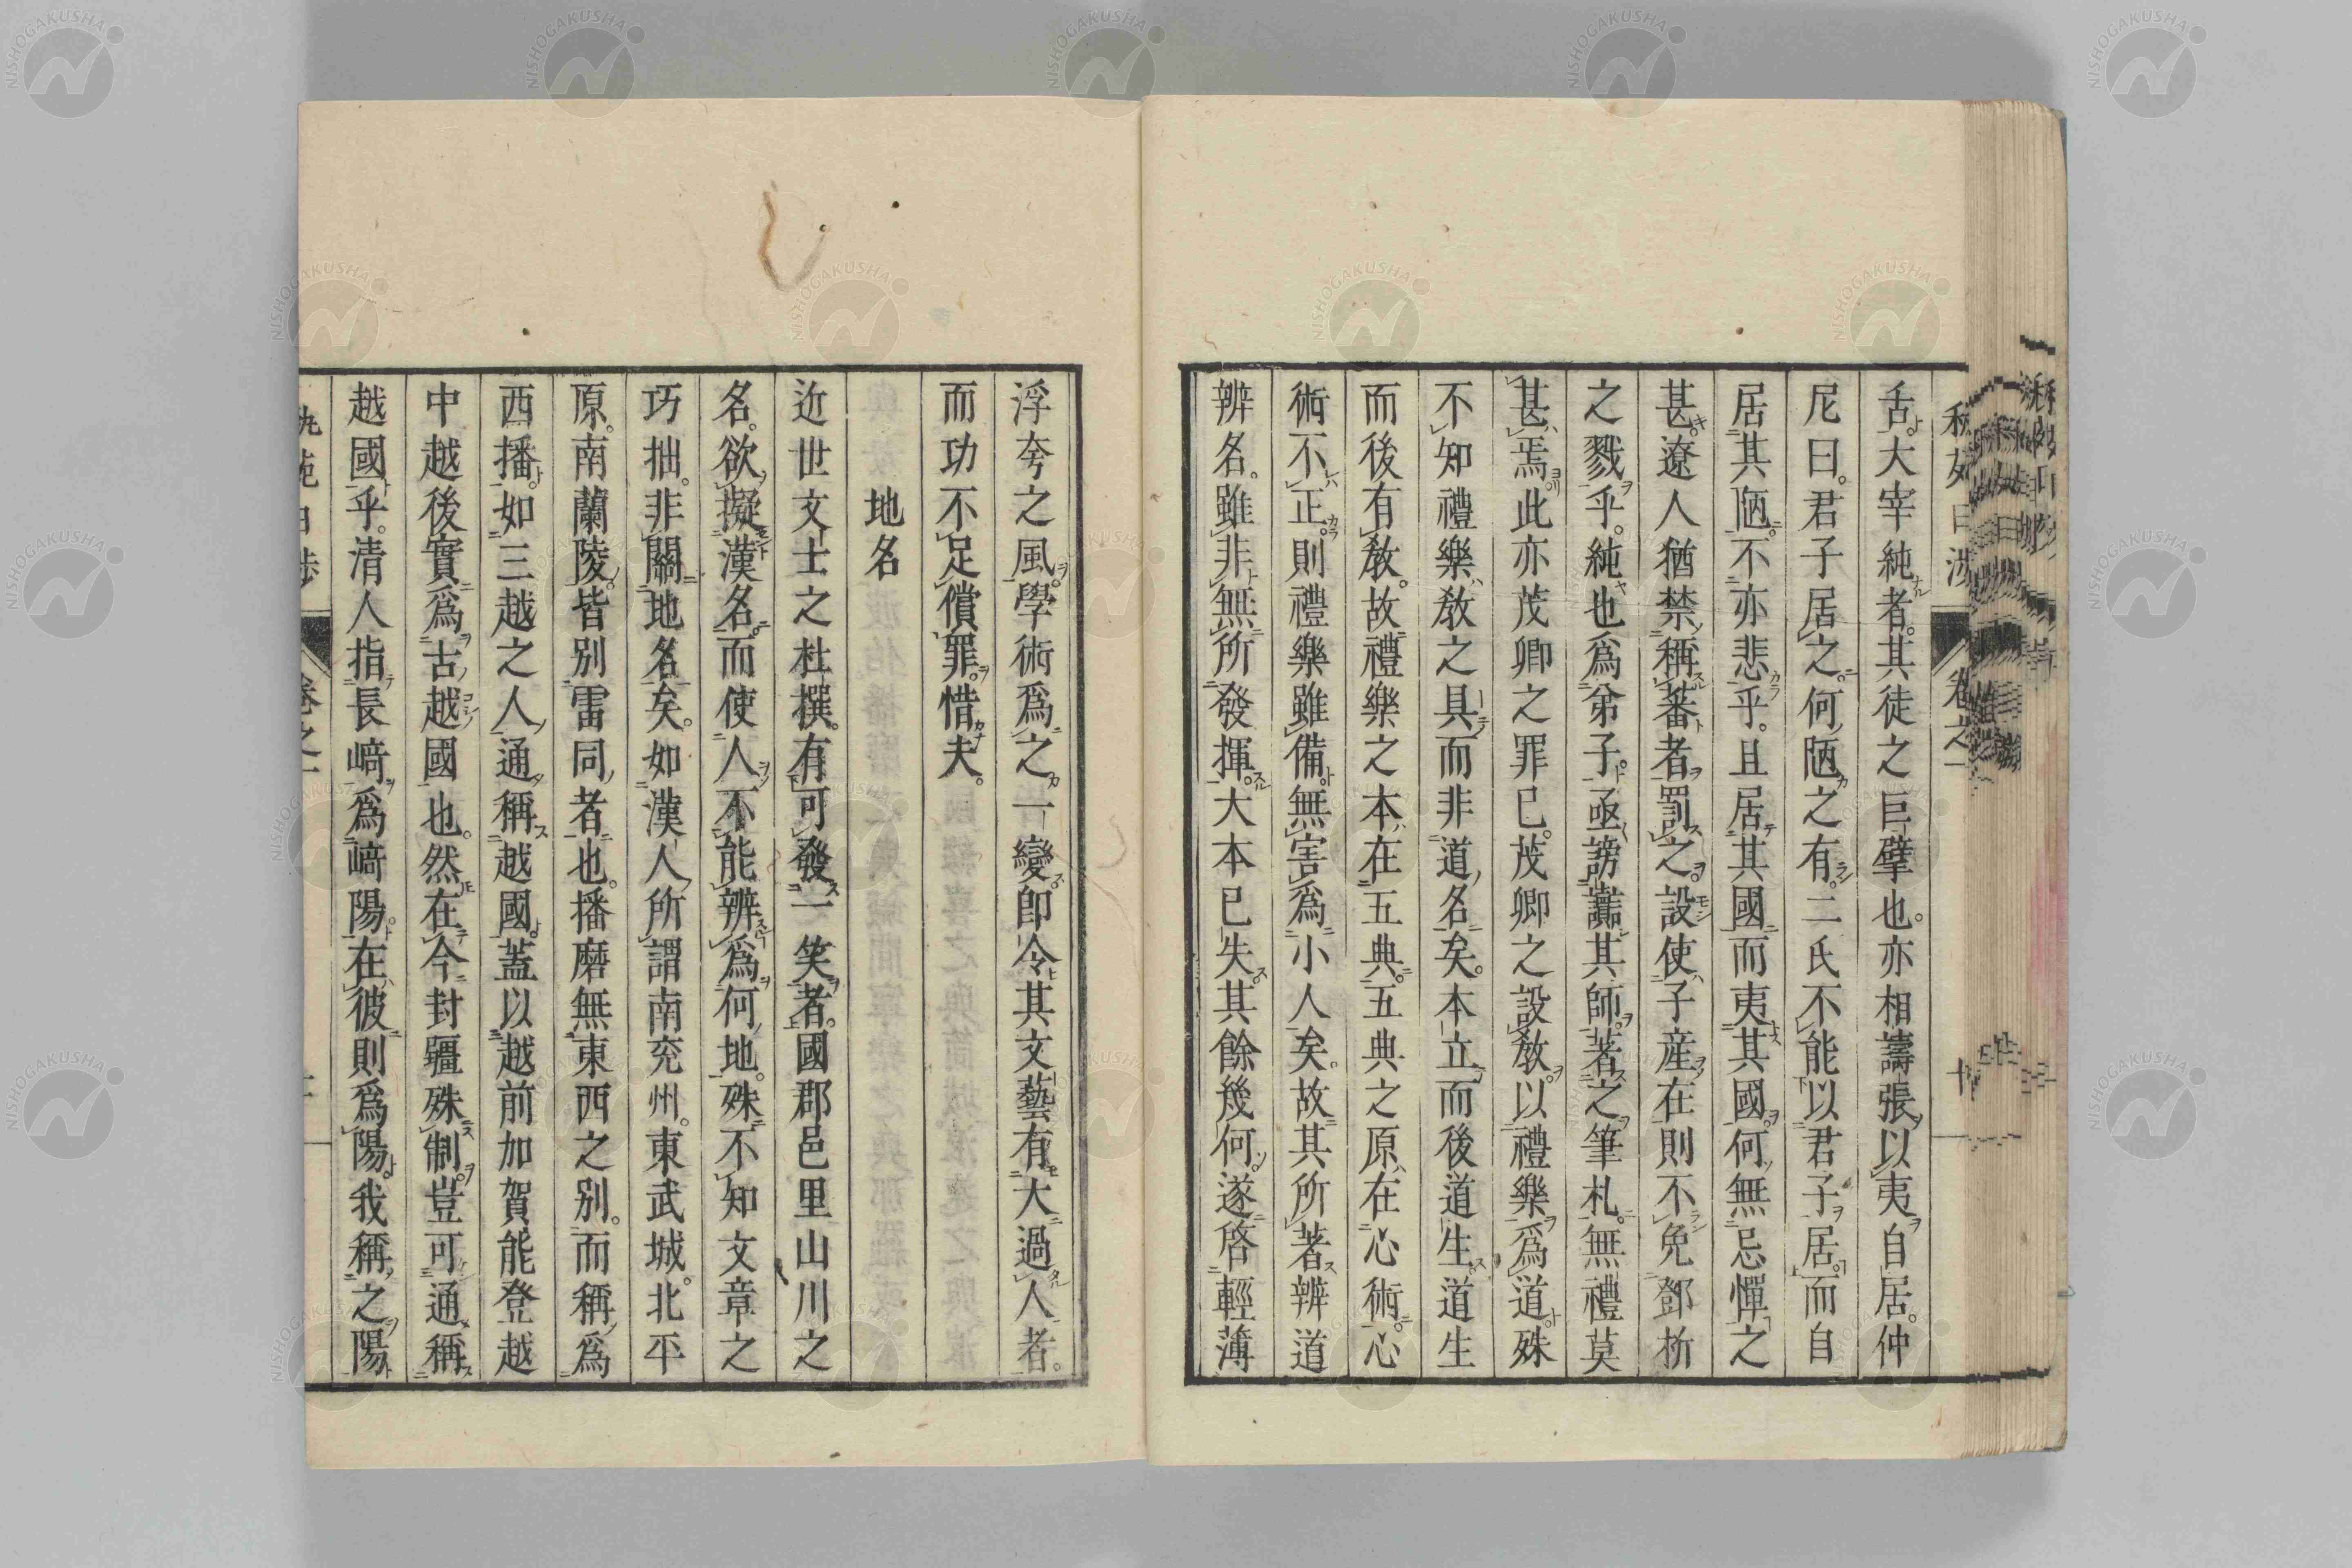 舌。大宰純者。其徒之巨擘也。亦相譸張以夷自居。仲
尼曰。君子居之。何陋之有。二氏不能以君子居。而自
居其陋。不亦悲乎。且居其國而夷其國。何無忌憚之
甚。遼人猶禁稱蕃者罰之。設使子産在則不免鄧析
之戮乎。純也爲弟子。亟謗讟其師。著之筆札。無禮莫
甚焉。此亦茂卿之罪已。茂卿之設教。以禮樂爲道。殊
不知禮樂教之具而非道名矣。本立而後道生。道生
而後有教。故禮樂之本在五典。五典之原在心術。心
術不正。則禮樂雖備。無害爲小人矣。故其所著辨道
辨名。雖非無所發揮。大本已失。其餘幾何。遂啓輕薄
浮夸之風。學術爲之一變。即今其文藝有大過人者。
而功不足償罪。惜夫。
地名
近世文士之杜撰。有可發一笑者。國郡邑里山川之
名。欲擬漢名。而使人不能辨爲何地。殊不知文章之
巧拙。非關地名矣。如漢人所謂南兗州。東武城。北平
原。南蘭陵。皆別雷同者也。播磨無東西之別。而稱爲
西播。如三越之人通稱越國。蓋以越前加賀能登越
中越後實爲古越國也。然在今封疆殊制。豈可通稱
越國乎。清人指長﨑爲﨑陽。在彼則爲陽。我稱之陽
卷之一
NISHOGAKUSHA